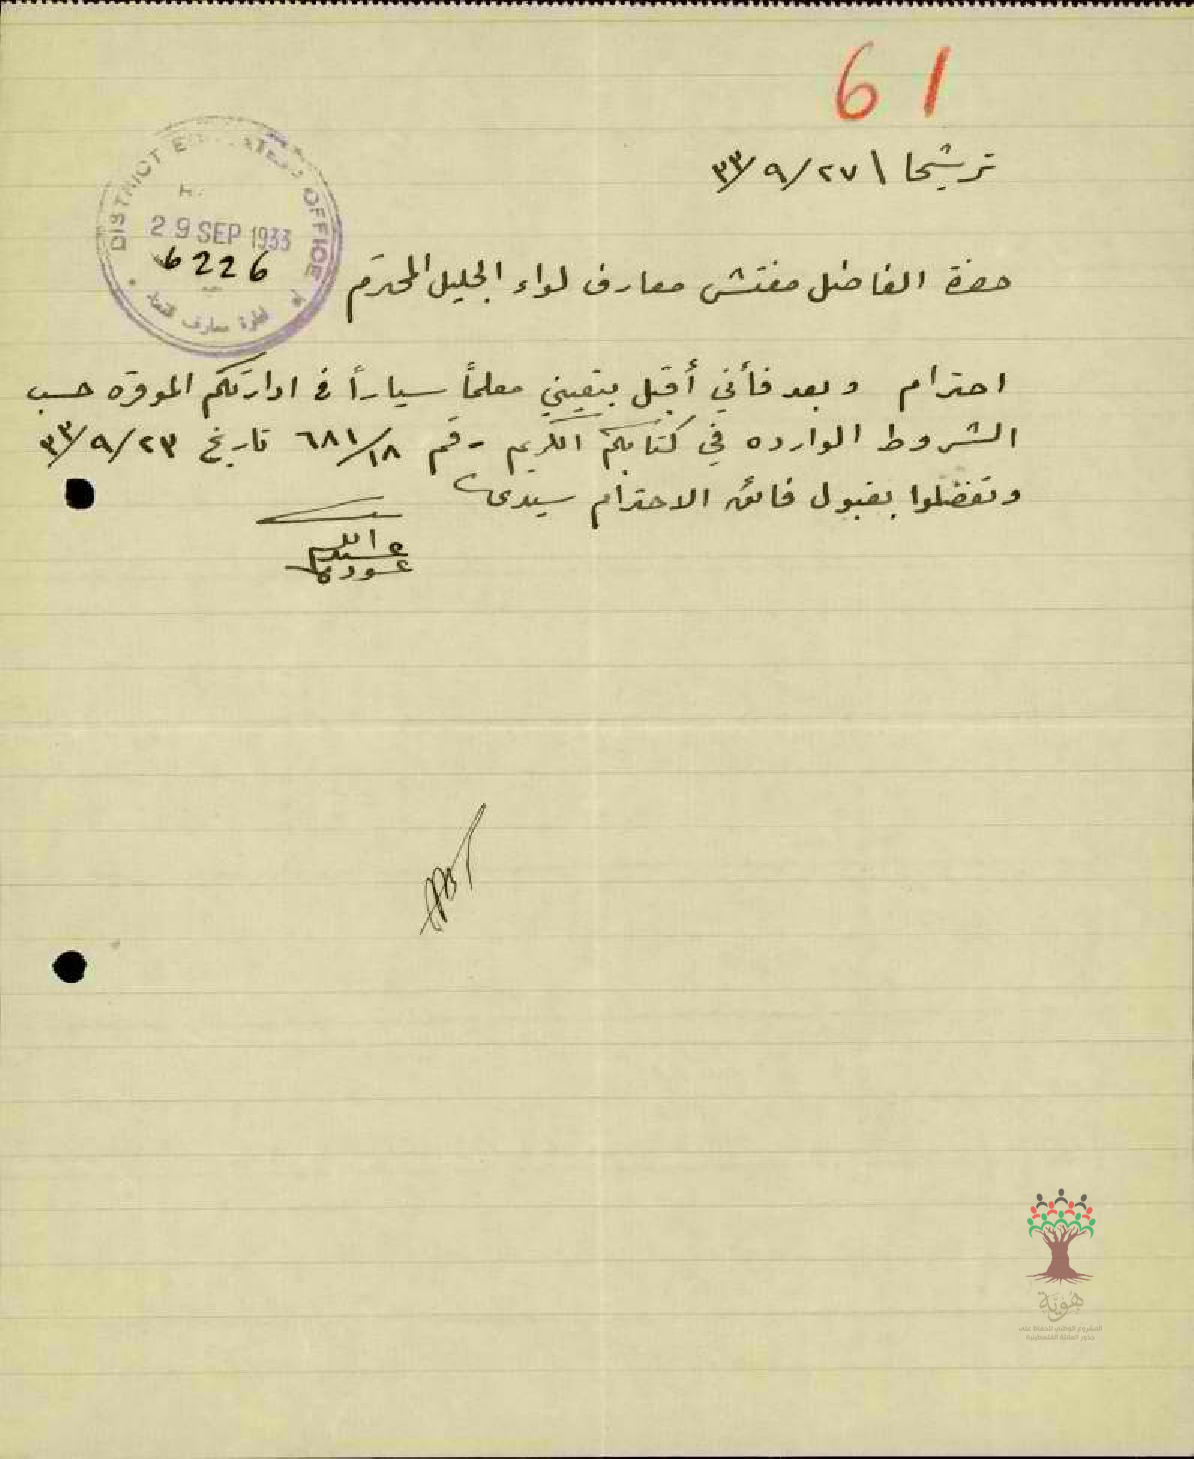 61
ترشيحا \ ٢٧/٩/٣٣
DISTRICT E OFFICE
29 SEP 1933
6226
ادارة معارف
حضرة الفاضل مفتش معارف لواء الجليل المحترم
احترام وبعد فأني أقبل بتعييني معلماً سياراً في ادارتكم الموقره حسب
الشروط الوارده في كتابكم الكريم رقم ٦٨١/١٨ تاريخ ٢٣/٩/٣٣
وتفضلوا بقبول فائق الاحترام سيدي
عبدالله
عوده
هَوِيَّة
المشروع الوطني للحفاظ على
جذور العائلة الفلسطينية